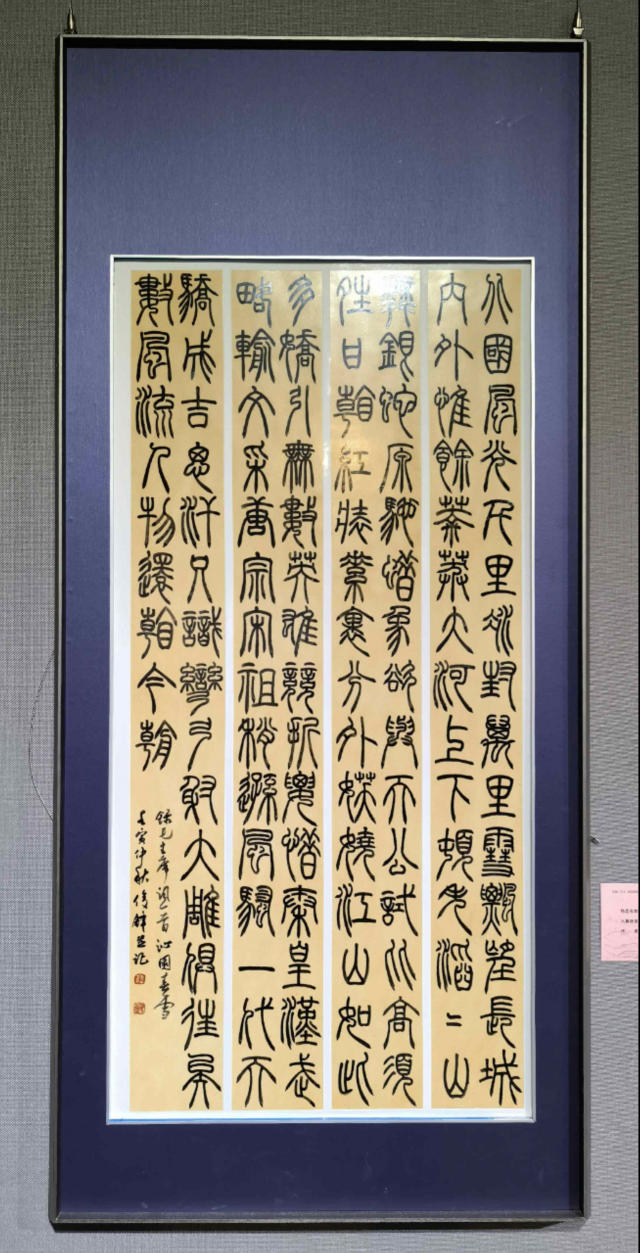 北國風光千里冰封萬里雪飄望長城
內外惟餘莽莽大河上下頓失滔〻山
舞銀蛇原馳蠟象欲與天公試比高須
晴日看紅裝素裹分外妖嬈江山如此
多嬌引無數英雄競折腰惜秦皇漢武
略輸文采唐宗宋祖稍遜風騷一代天
驕成吉思汗只識彎弓射大雕俱往矣
數風流人物還看今朝
錄毛主席詞一首沁園春雪
壬寅仲秋